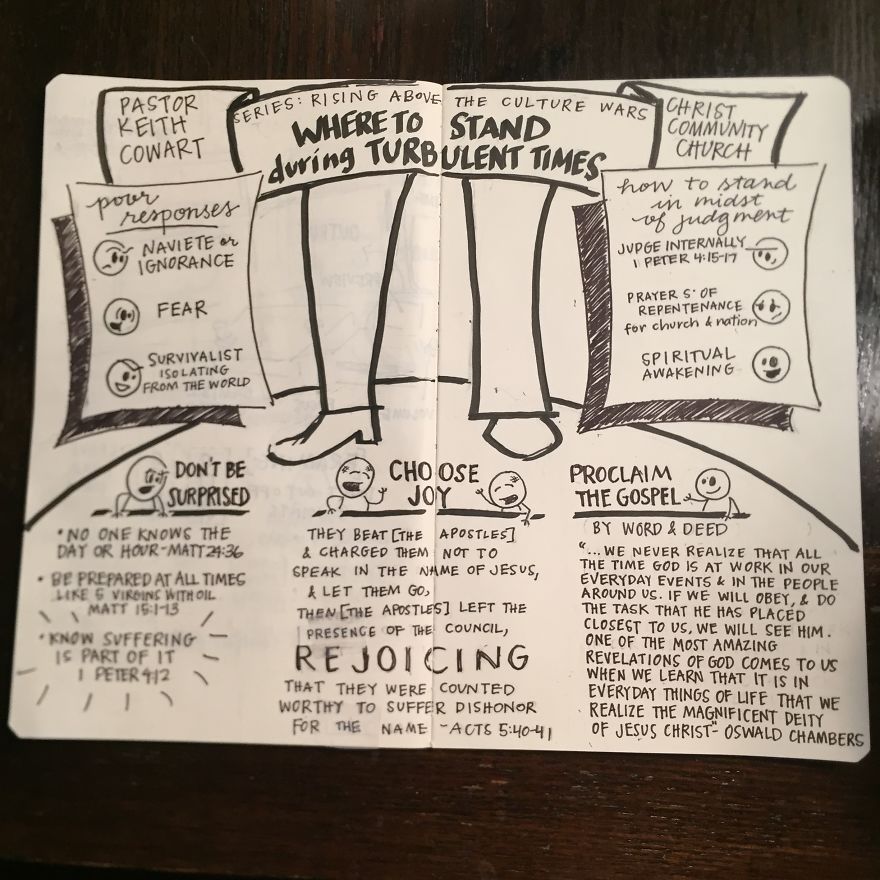 PASTOR
KEITH
COWART
SERIES: RISING ABOVE THE CULTURE WARS
WHERE TO STAND
during TURBULENT TIMES
CHRIST
COMMUNITY
CHURCH
poor
responses
NAVIETE or
IGNORANCE
FEAR
SURVIVALIST
ISOLATING
FROM THE WORLD
how to stand
in midst
of judgment
JUDGE INTERNALLY
1 PETER 4:15-17
PRAYERS OF
REPENTENANCE
for church & nation
SPIRITUAL
AWAKENING
DON'T BE
SURPRISED
• NO ONE KNOWS THE
DAY OR HOUR-MATT 24:36
• BE PREPARED AT ALL TIMES
LIKE 5 VIRGINS WITH OIL
MATT 15:1-13
• KNOW SUFFERING
IS PART OF IT
1 PETER 4:12
CHOOSE
JOY
THEY BEAT [THE APOSTLES]
& CHARGED THEM NOT TO
SPEAK IN THE NAME OF JESUS,
& LET THEM GO,
THEN [THE APOSTLES] LEFT THE
PRESENCE OF THE COUNCIL,
REJOICING
THAT THEY WERE COUNTED
WORTHY TO SUFFER DISHONOR
FOR THE NAME -ACTS 5:40-41
PROCLAIM
THE GOSPEL
BY WORD & DEED
"...WE NEVER REALIZE THAT ALL
THE TIME GOD IS AT WORK IN OUR
EVERYDAY EVENTS & IN THE PEOPLE
AROUND US. IF WE WILL OBEY, & DO
THE TASK THAT HE HAS PLACED
CLOSEST TO US, WE WILL SEE HIM.
ONE OF THE MOST AMAZING
REVELATIONS OF GOD COMES TO US
WHEN WE LEARN THAT IT IS IN
EVERYDAY THINGS OF LIFE THAT WE
REALIZE THE MAGNIFICENT DEITY
OF JESUS CHRIST"- OSWALD CHAMBERS